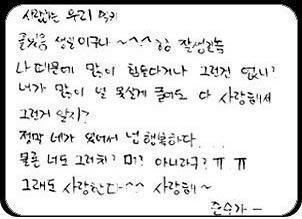 사랑하는 우리 믹키
생일이구나 ~^^ 핫 잘생긴놈
나 때문에 많이 힘들다거나 그런건 없니?
내가 많이 널 못살게 굴어도 다 사랑해서
그런거 알지?
정말 네가 있어서 넘 행복하다...
물론 너도 그러치? 뭐? 아니라구? ㅠㅠ
그래도 사랑한다 ^^ 사랑해~
준수가 -